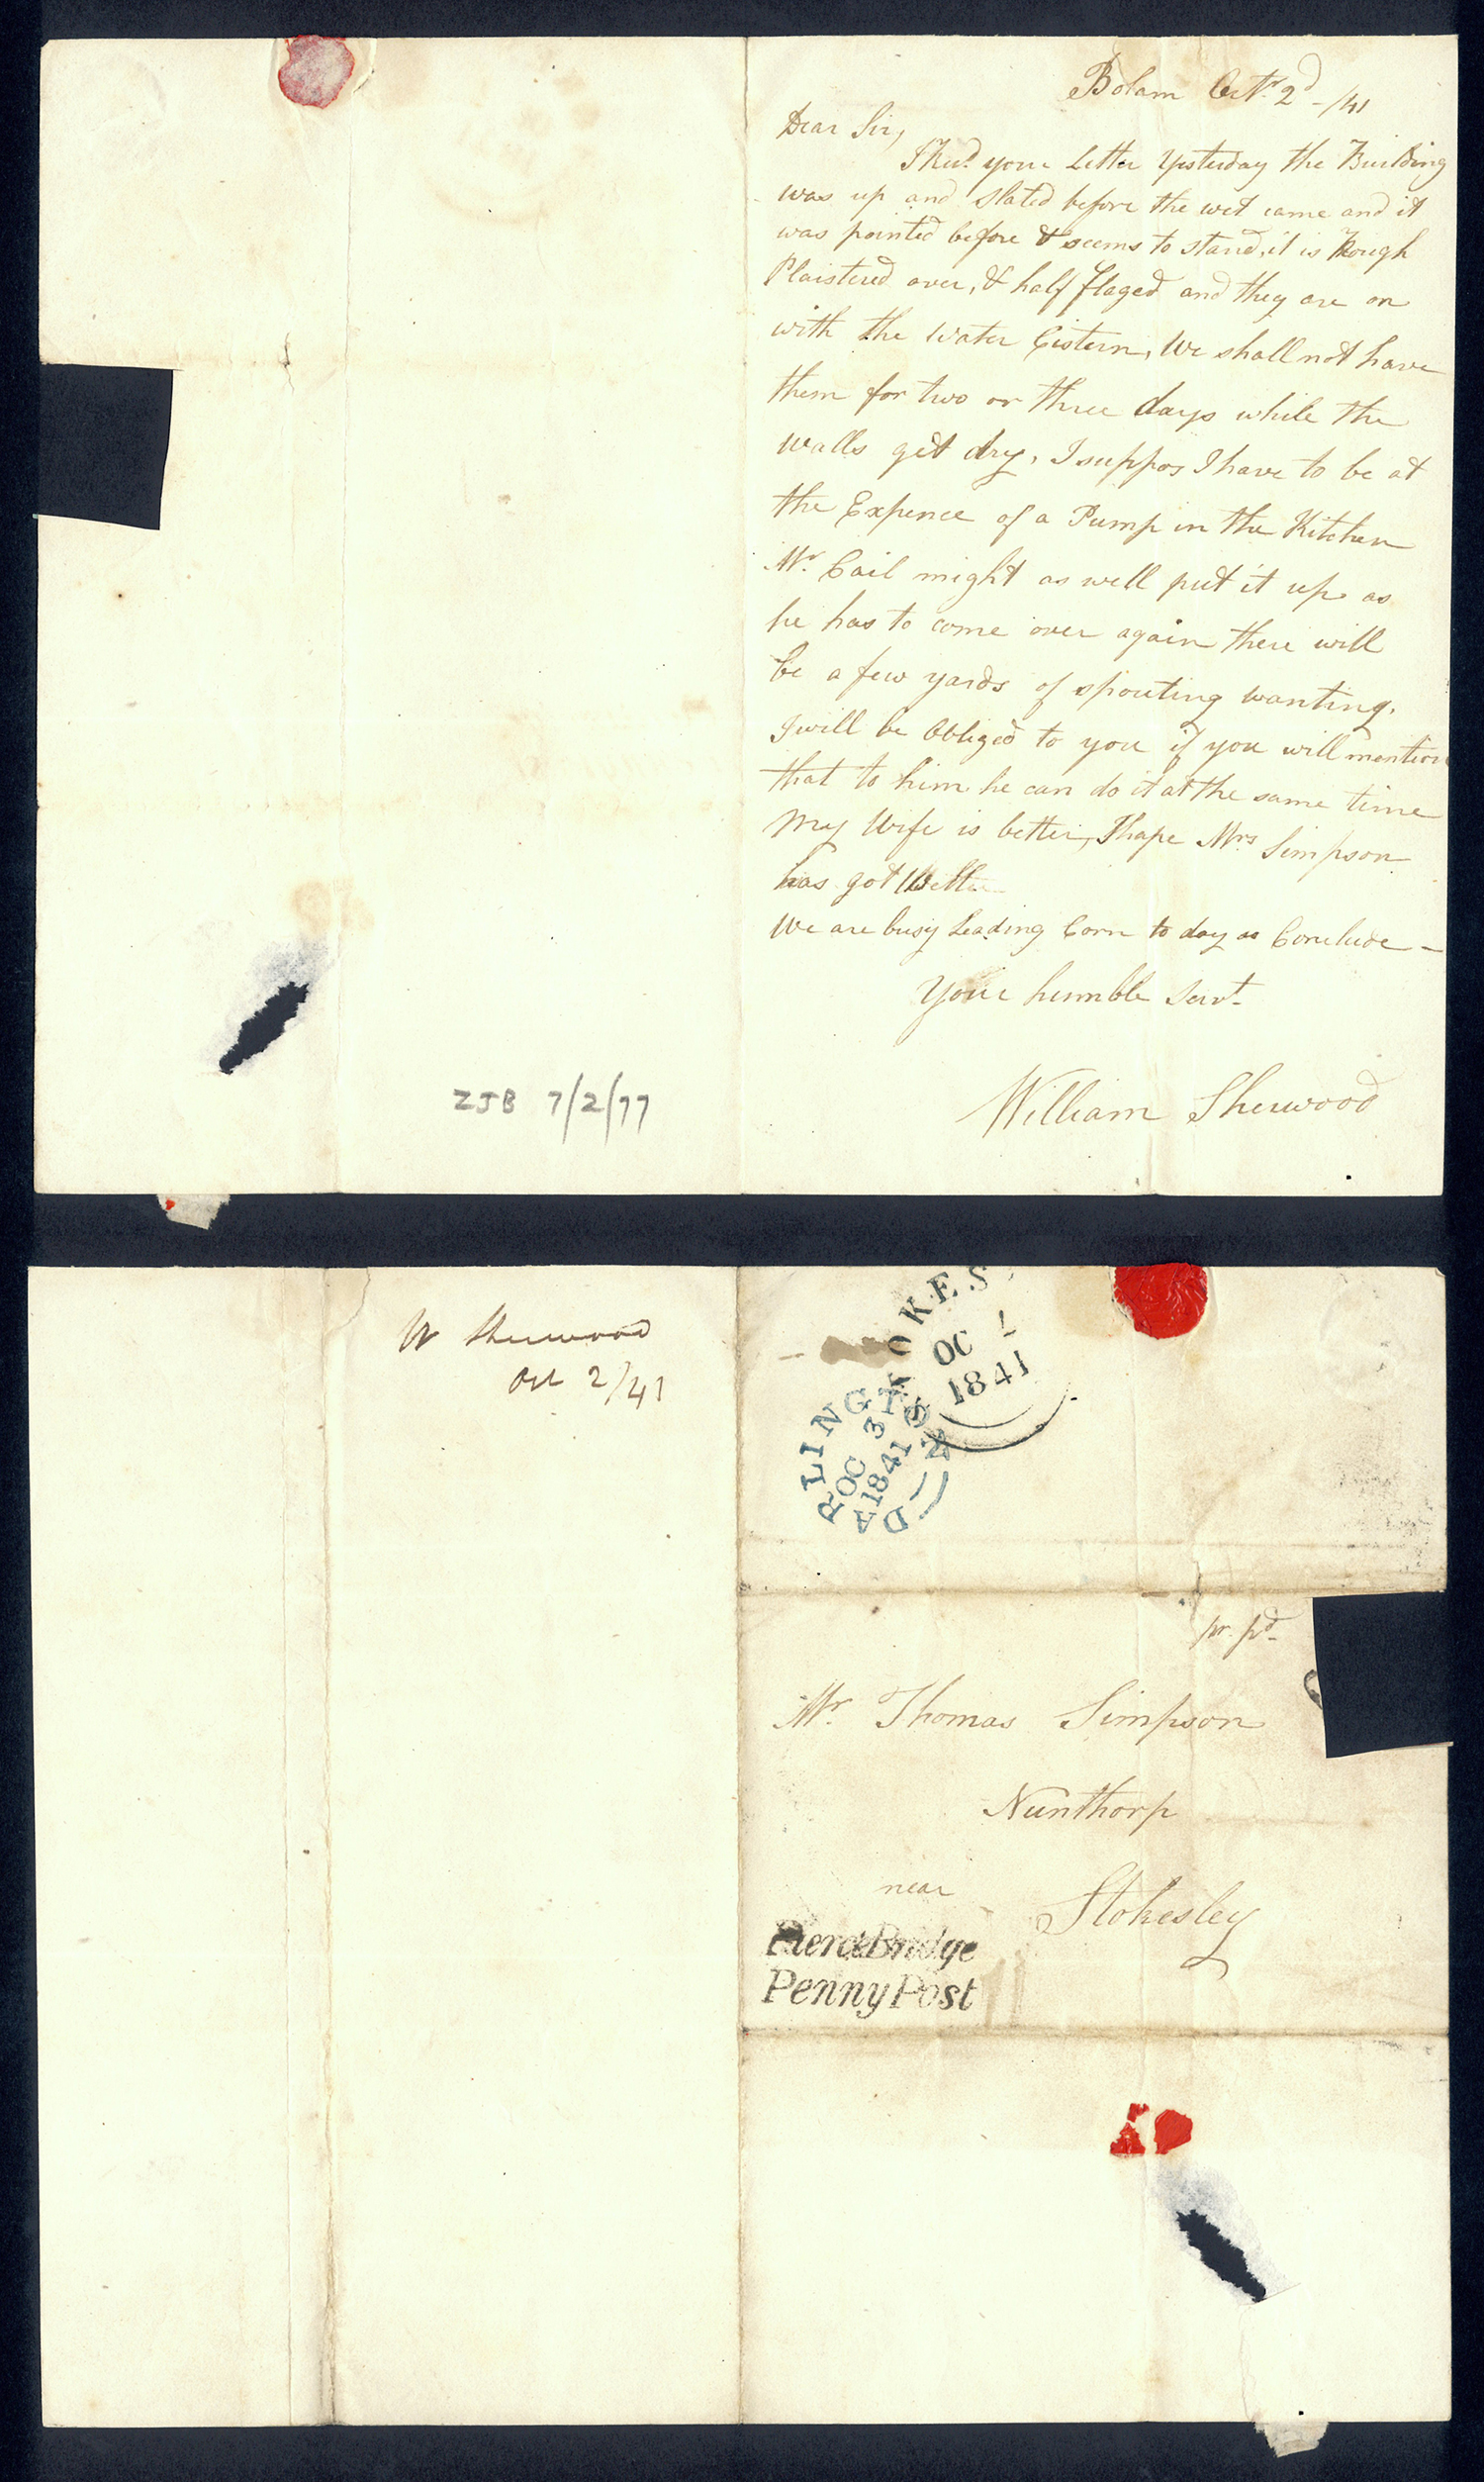 Bolam Octr. 2d -/41
Dear Sir,
I Recd. your Letter Yesterday the Building
was up and slated before the wet came and it
was pointed before & seems to stand, it is Rough
Plaistered over, & half flaged and they are on
with the Water Cistern, We shall not have
them for two or three days while the
walls get dry, I suppos I have to be at
the Expence of a Pump in the Kitchen
Mr. Cail might as well put it up as
he has to come over again there will
be a few yards of spouting wanting.
I will be Obliged to you if you will mention
that to him he can do it at the same time
My Wife is better, I hope Mrs Simpson
has got Better
We are busy Leading Corn to day as Conclude -
Your humble Servt.
William Sherwood
ZJB 7/2/77
W Sherwood
Oct 2/41
STOKES
OC
1841
DARLINGTON
OC 3
1841
A
pr. pd.
Mr. Thomas Simpson
Nunthorp
near Stokesley
PierceBridge
Penny Post